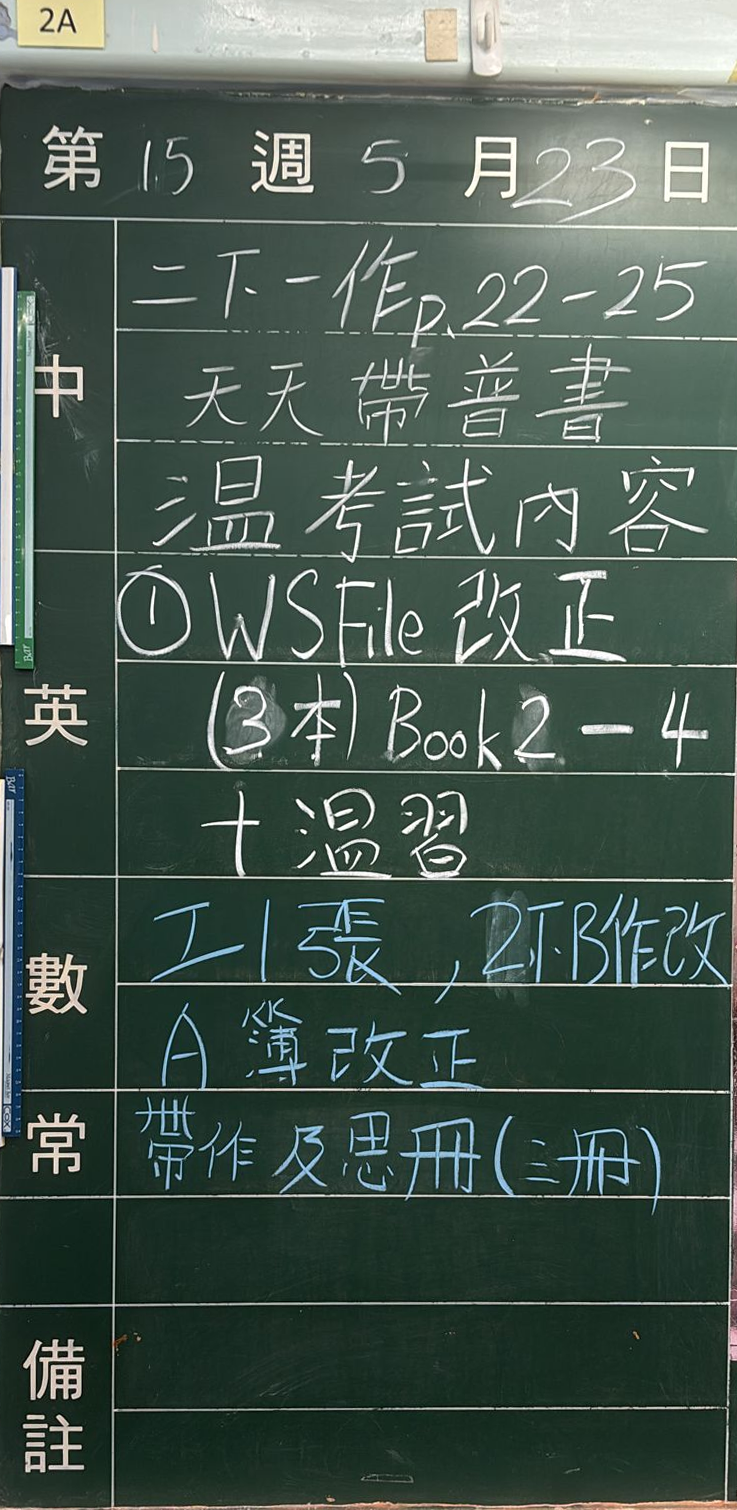 2A
第 15 週 5 月 23 日
中
二下一作p.22-25
天天帶普書
溫考試內容
英
①WSFile改正
(3本)Book2-4
+溫習
數
工1張,2下B作改
A簿改正
常
帶作及思冊(三冊)
備註